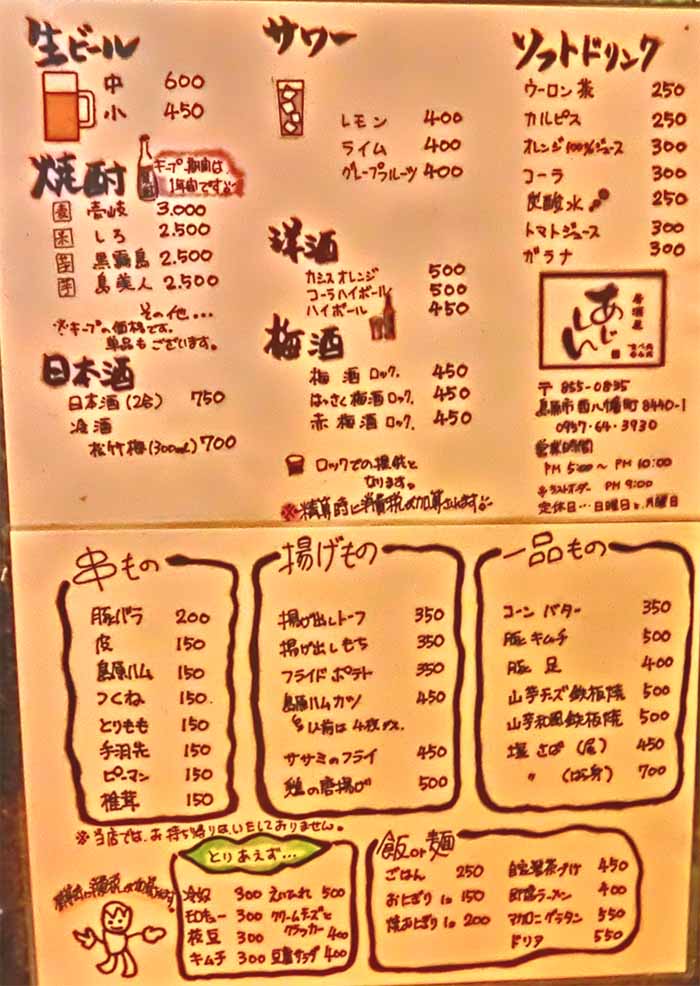 生ビール
中 600
小 450
焼酎
キープ期間は
1年間です。
麦 壱岐 3,000
米 しろ 2,500
芋 黒霧島 2,500
芋 島美人 2,500
その他...
※キープの価格です。
単品もございます。
日本酒
日本酒(2合) 750
冷酒
松竹梅(300ml) 700
サワー
レモン 400
ライム 400
グレープフルーツ 400
洋酒
カシスオレンジ 500
コーラハイボール 500
ハイボール 450
梅酒
梅酒ロック. 450
はっさく梅酒ロック. 450
赤梅酒ロック. 450
ロックでの提供と
なります。
※精算時に消費税が加算されます。
ソフトドリンク
ウーロン茶 250
カルピス 250
オレンジ100%ジュース 300
コーラ 300
炭酸水 250
トマトジュース 300
ガラナ 300
居酒屋
あじしん
〒855-0835
島原市西八幡町8440-1
0957・64・3930
営業時間
PM 5:00〜PM 10:00
ラストオーダー PM 9:00
定休日…日曜日と月曜日
串もの
豚バラ 200
皮 150
島原ハム 150
つくね 150
とりもも 150
手羽先 150
ピーマン 150
椎茸 150
揚げもの
揚げ出しトーフ 350
揚げ出しもち 350
フライドポテト 350
島原ハムカツ 450
1人前は4枚です。
ササミのフライ 450
鶏の唐揚げ 500
一品もの
コーンバター 350
豚キムチ 500
豚足 400
山芋チーズ鉄板焼 500
山芋和風鉄板焼 500
塩さば(尾) 450
〃 (ばら身) 700
※当店では、お持ち帰りはいたしておりません。
とりあえず…
冷奴 300
モロキュー 300
枝豆 300
キムチ 300
えいひれ 500
クリームチーズと
クラッカー 400
豆腐サラダ 400
飯or麺
ごはん 250
おにぎり1コ 150
焼おにぎり1コ 200
自家製茶づけ 450
即席ラーメン 400
マカロニグラタン 550
ドリア 550